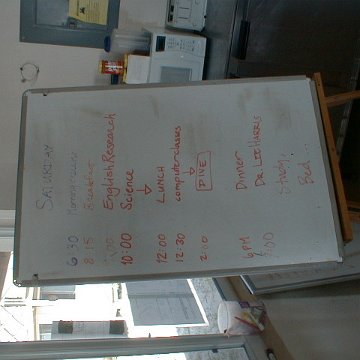 SATURDAY
6:30
8:15 Breakfast
English Research
10:00 Science
↓
12:00 LUNCH
12:30 computer classes
↓
2:00 DIVE
6PM Dinner
7:00 DR. LEE HARRIS
Study
Bed